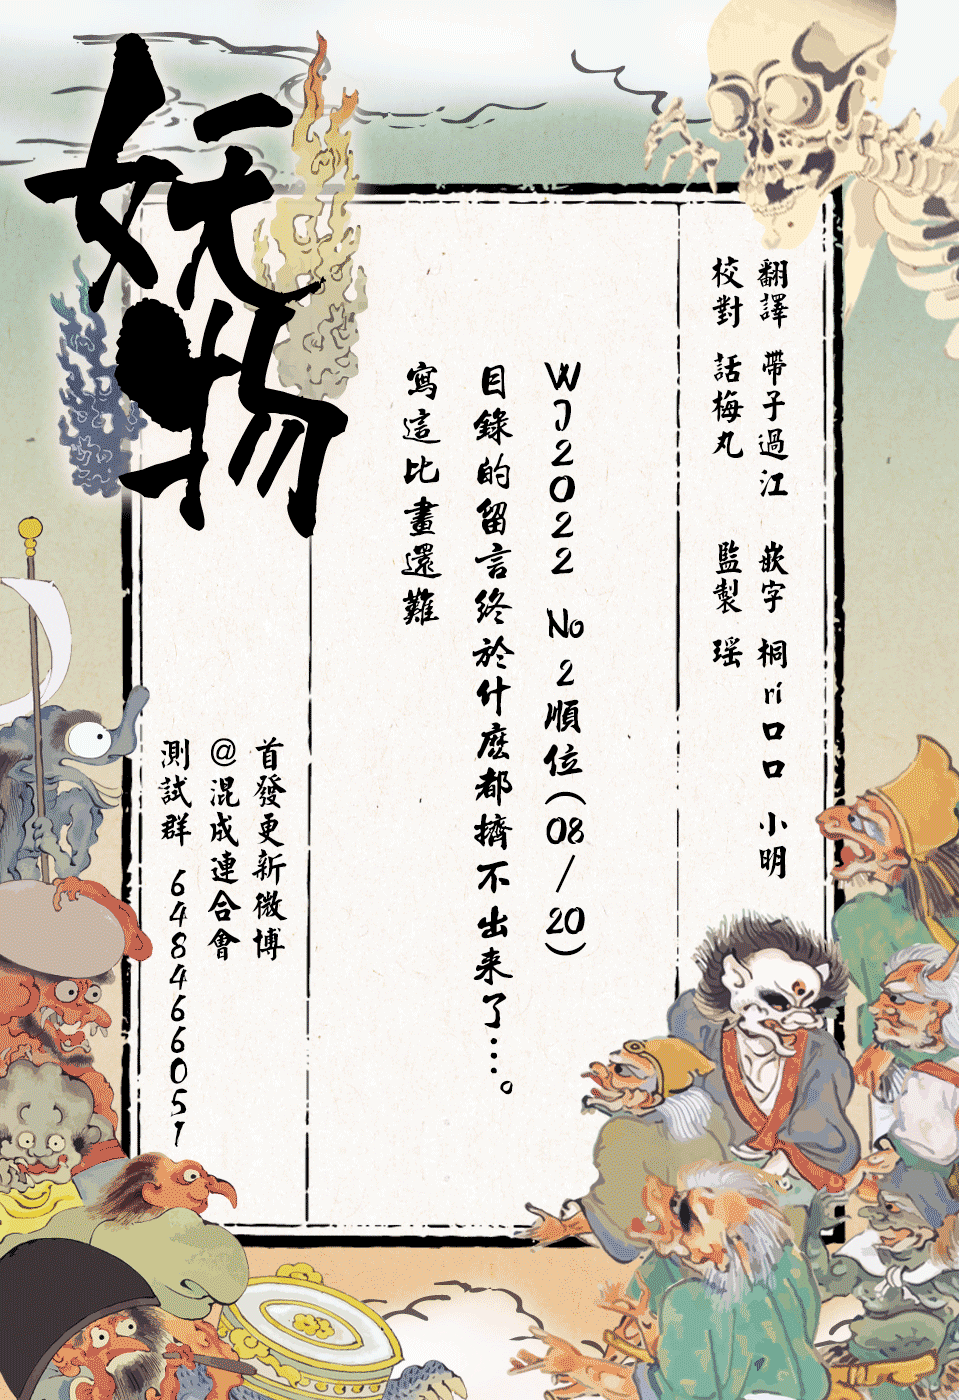 翻譯 帶子過江 嵌字 桐ri口口 小明
校對 話梅丸 監製 瑶
WJ2022 No2順位(08/20)
目錄的留言終於什麽都擠不出来了…。
寫這比畫還難
妖物
首發更新微博
@混成連合會
測試群 648466051